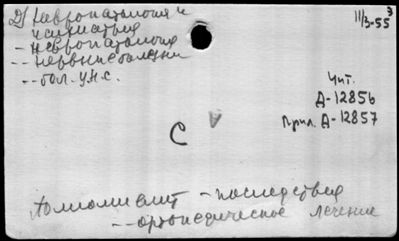 2) Невропатология и
психиатрия
- невропатология
-- нервные болезни
-- бол. у.н.с.
11/3-55 э
Чит.
Д-12856
Прил. Д-12857
С А
Полиомиелит - последствия
-- ортопедическое лечение